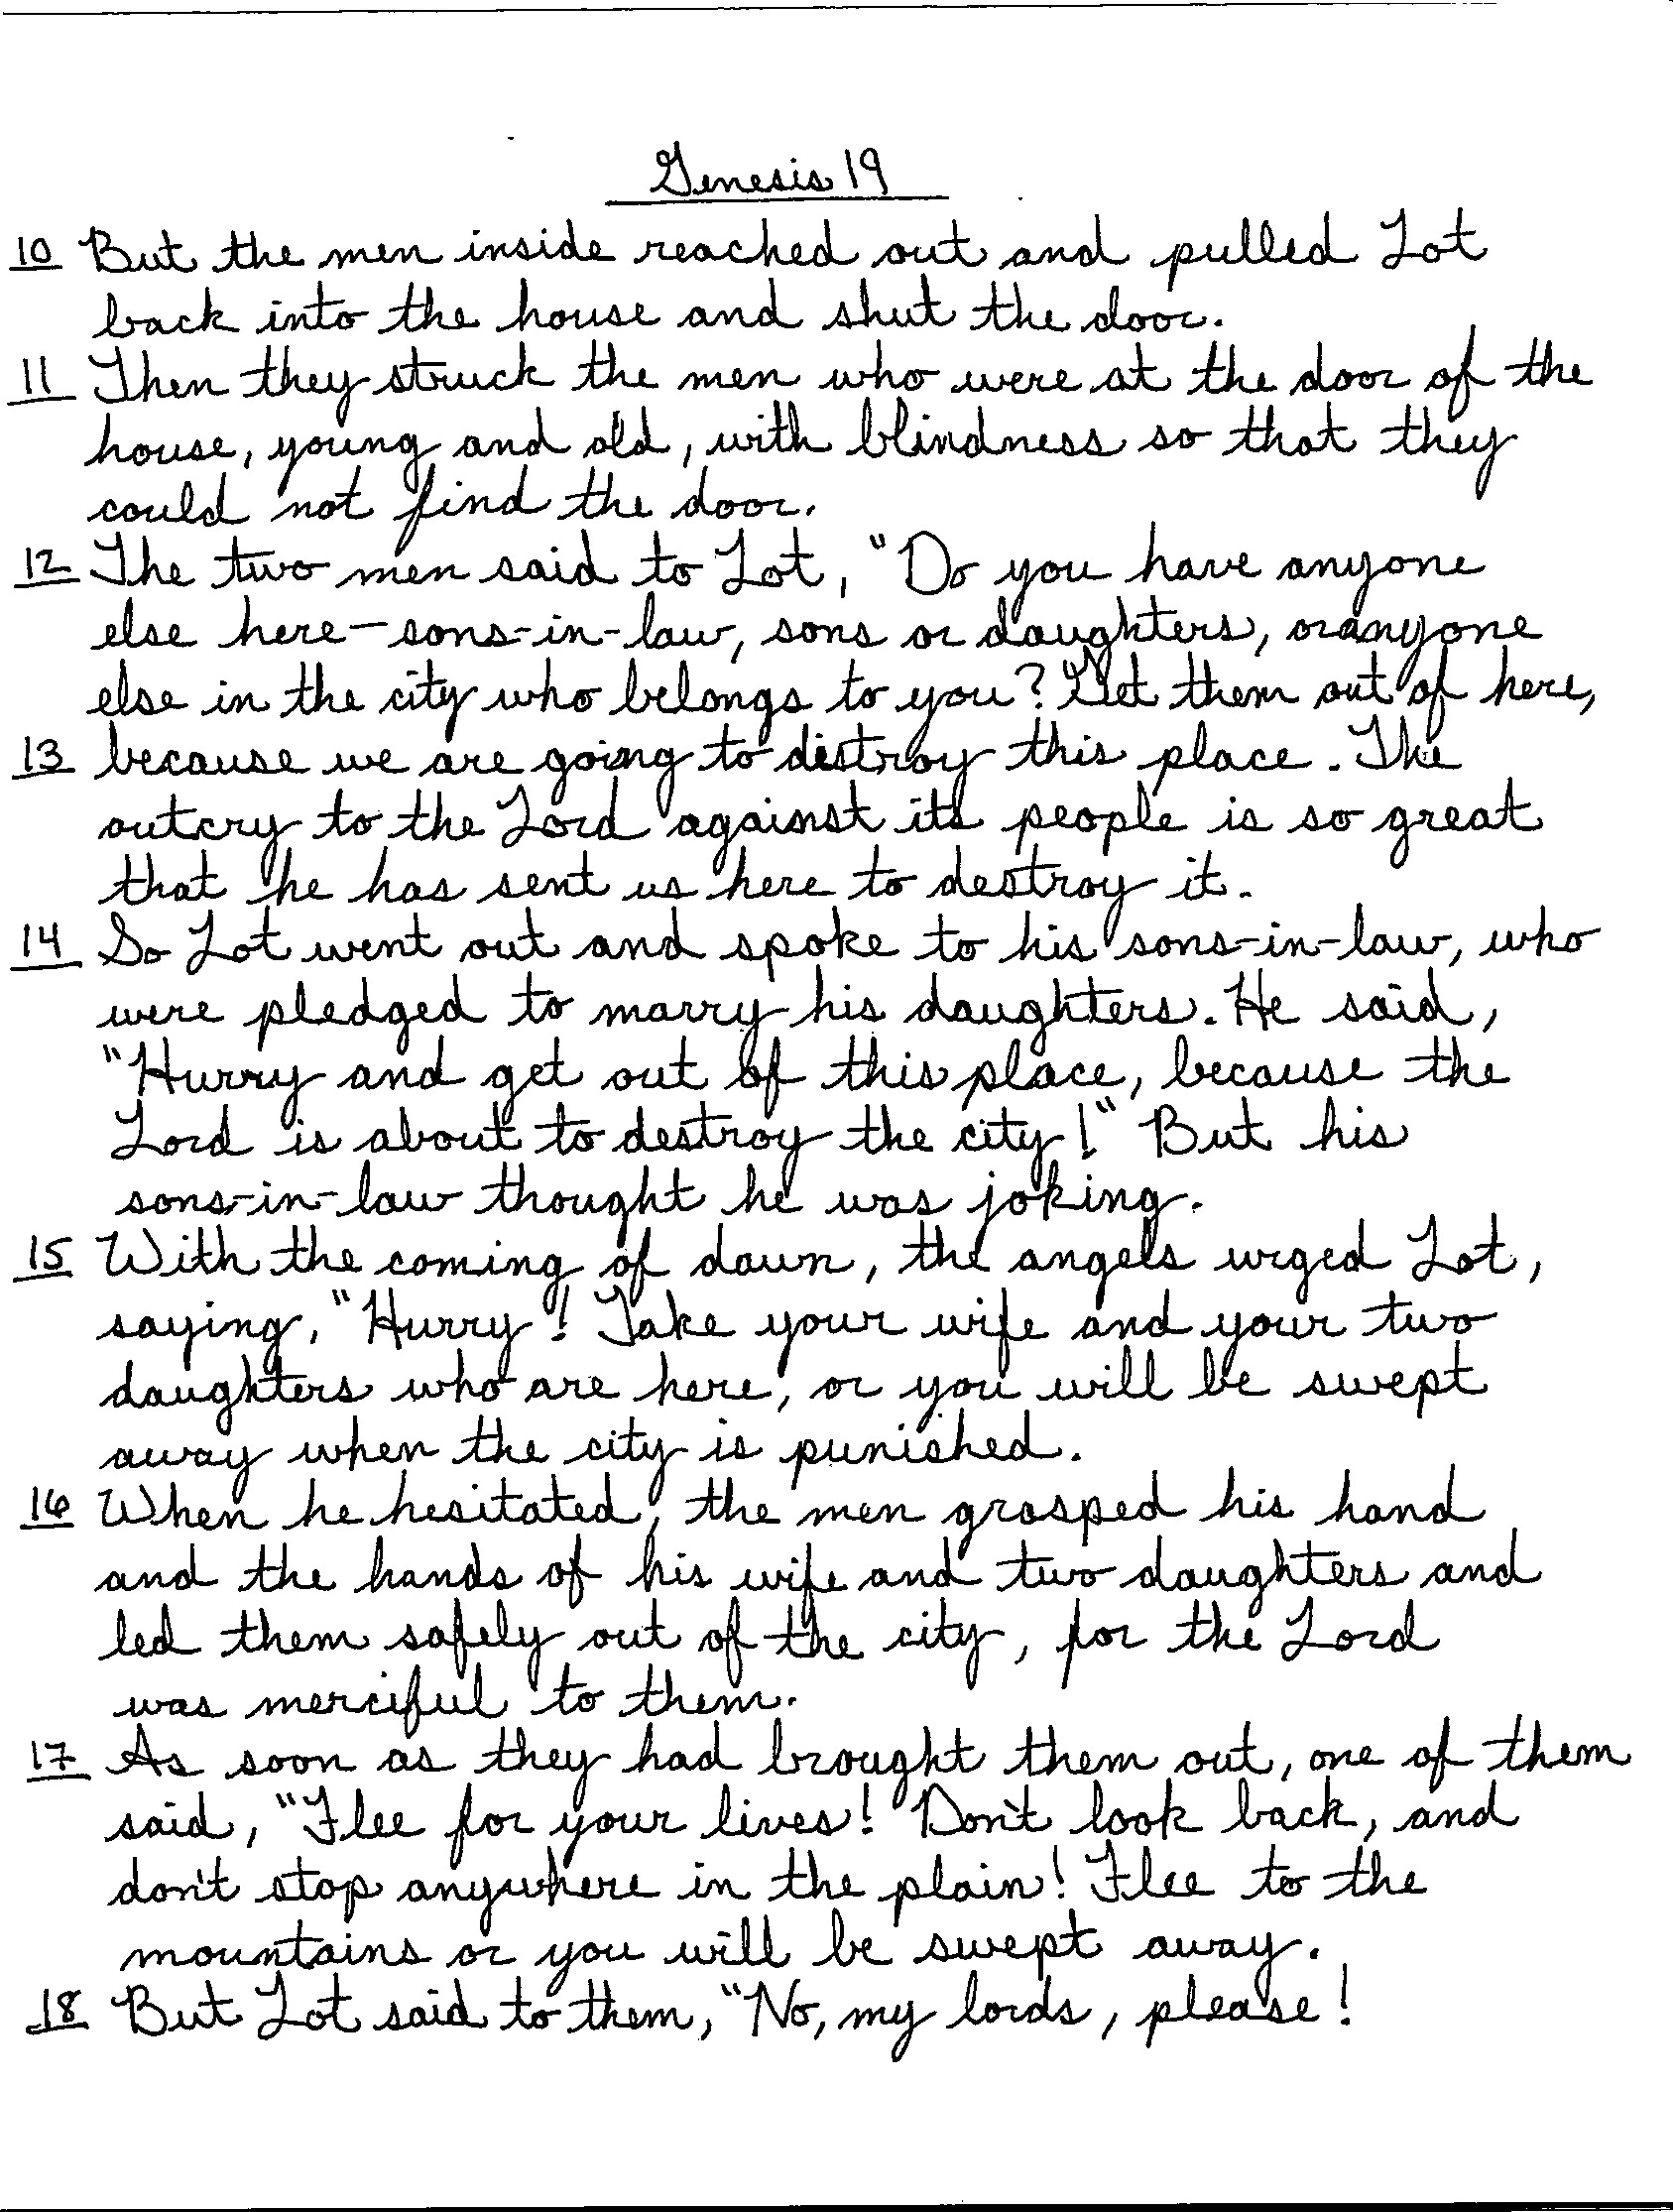 Genesis 19
10 But the men inside reached out and pulled Lot
back into the house and shut the door.
11 Then they struck the men who were at the door of the
house, young and old, with blindness so that they
could not find the door.
12 The two men said to Lot, "Do you have anyone
else here - sons-in-law, sons or daughters, or anyone
else in the city who belongs to you? Get them out of here,
13 because we are going to destroy this place. The
outcry to the Lord against its people is so great
that he has sent us here to destroy it.
14 So Lot went out and spoke to his sons-in-law, who
were pledged to marry his daughters. He said,
"Hurry and get out of this place, because the
Lord is about to destroy the city!" But his
sons-in-law thought he was joking.
15 With the coming of dawn, the angels urged Lot,
saying, "Hurry! Take your wife and your two
daughters who are here, or you will be swept
away when the city is punished.
16 When he hesitated, the men grasped his hand
and the hands of his wife and two daughters and
led them safely out of the city, for the Lord
was merciful to them.
17 As soon as they had brought them out, one of them
said, "Flee for your lives! Don't look back, and
don't stop anywhere in the plain! Flee to the
mountains or you will be swept away.
18 But Lot said to them, "No, my lords, please!